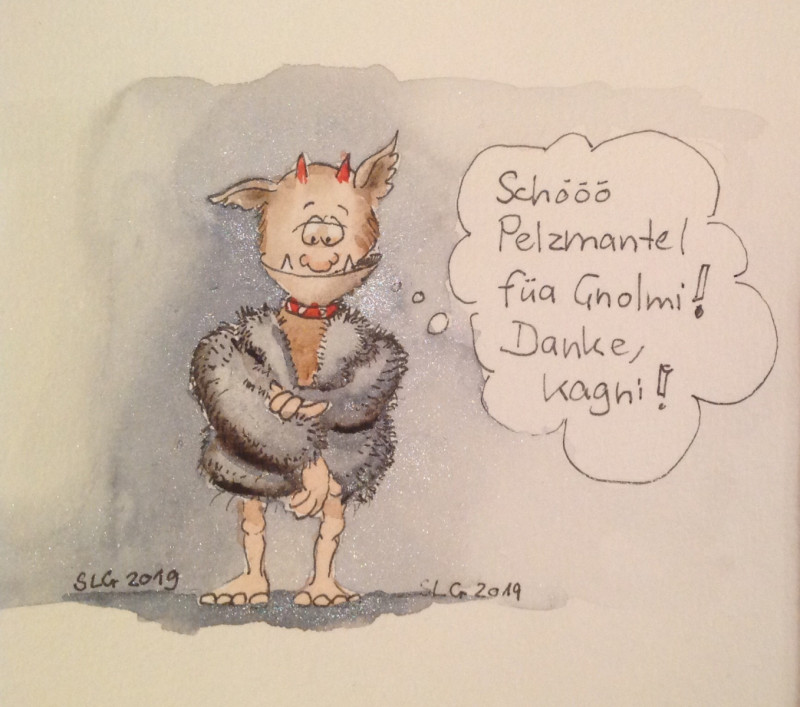 Schööö
Pelzmantel
füa Gnolmi!
Danke,
Kagni!
SLG 2019
SLG 2019